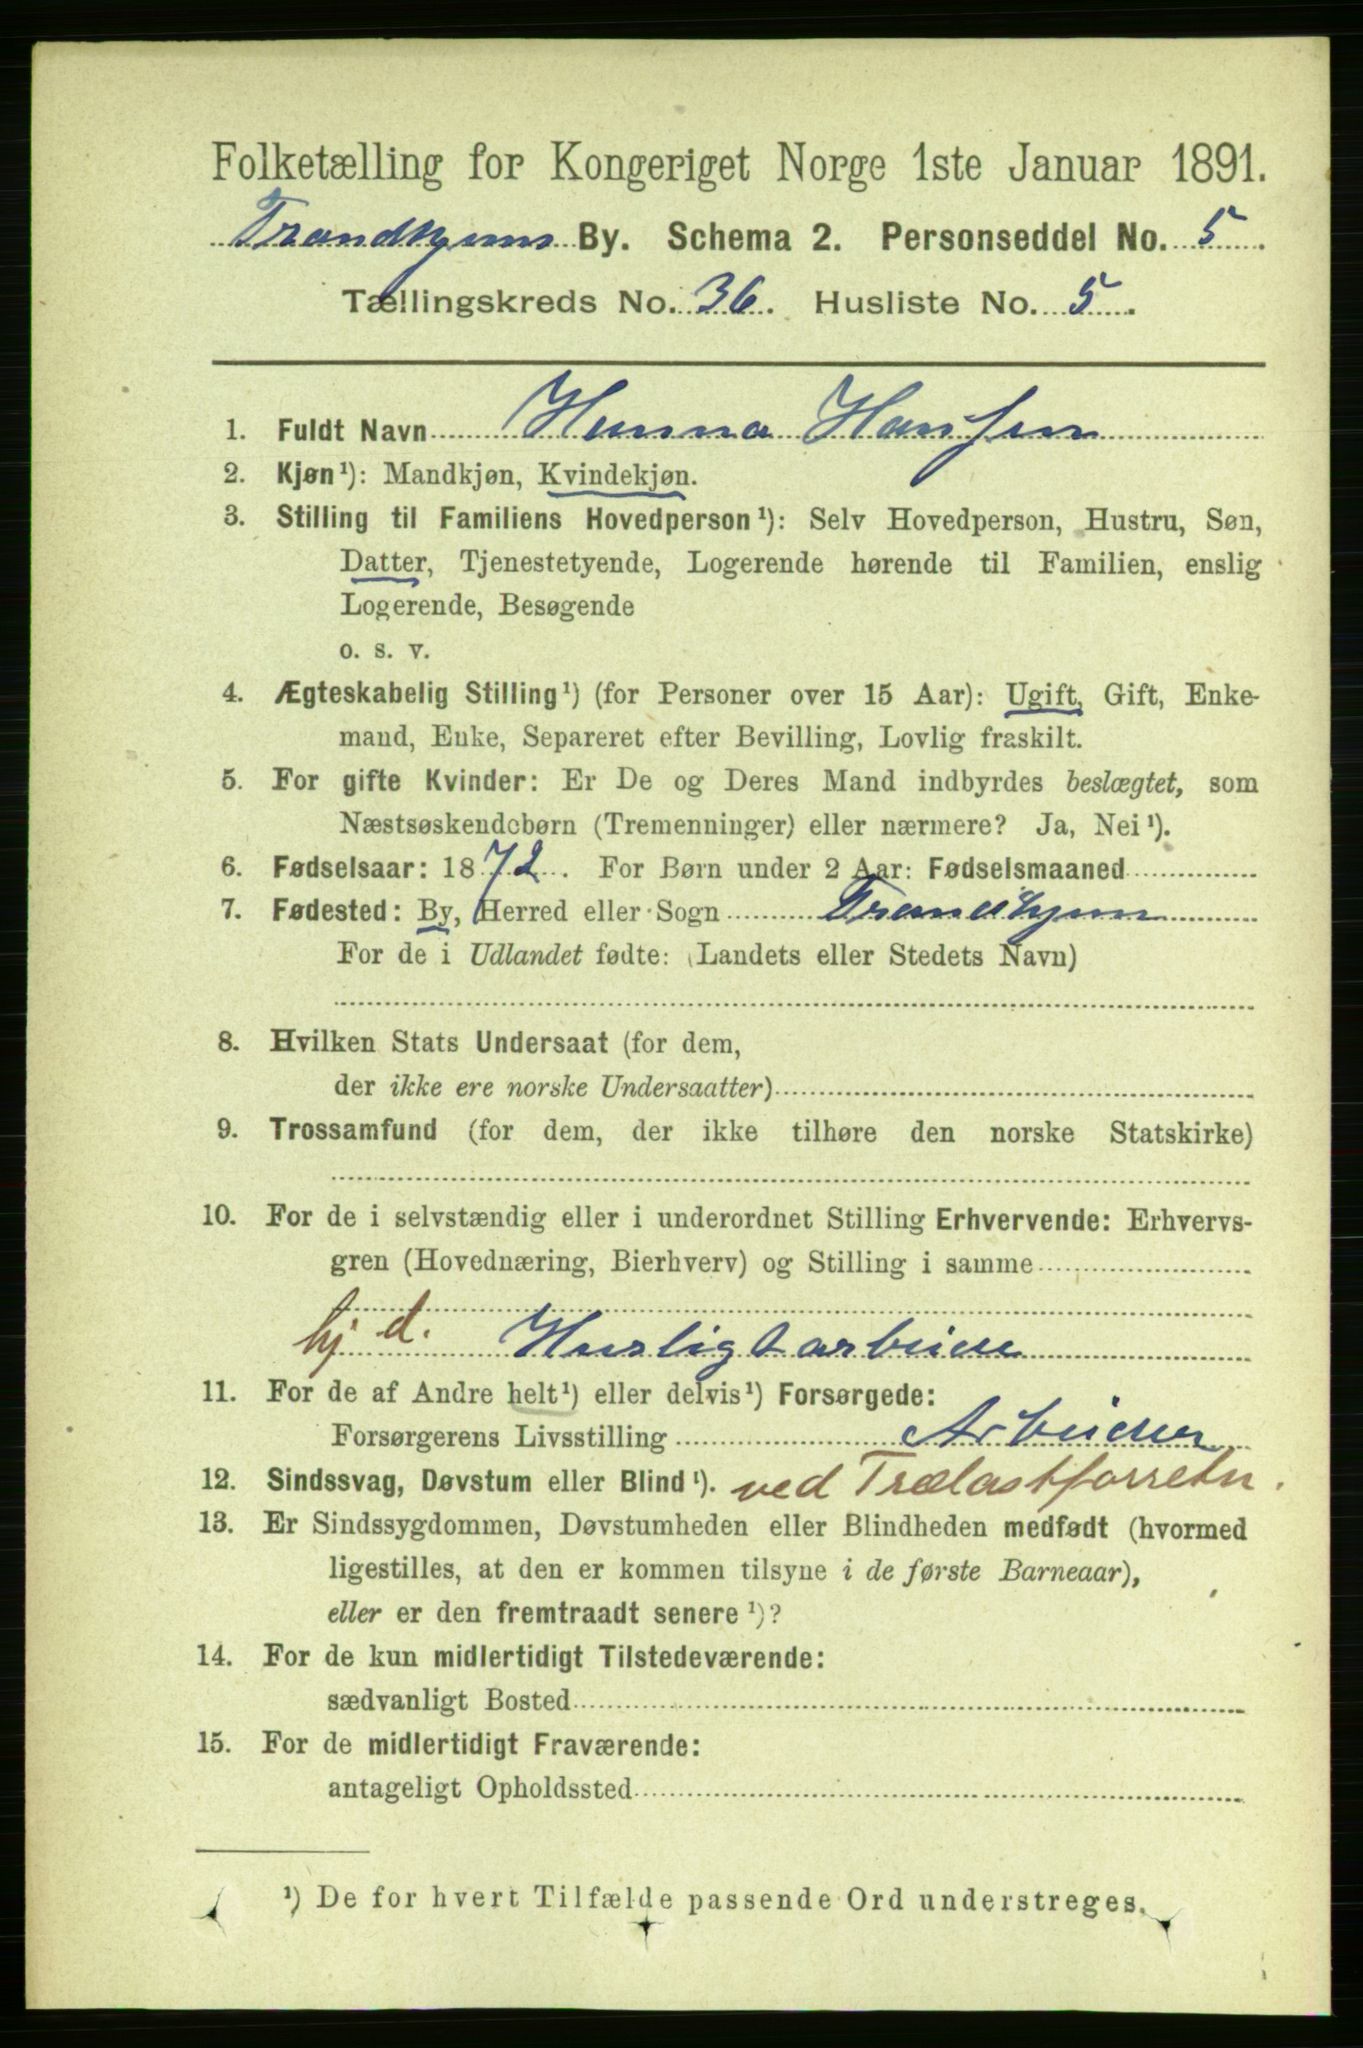 Folketælling for Kongeriget Norge 1ste Januar 1891.
Trondhjems By. Schema 2. Personseddel No. 5.
Tællingskreds No. 36. Husliste No. 5.
1. Fuldt Navn Hanna Hansen
2. Kjøn¹): Mandkjøn, Kvindekjøn.
3. Stilling til Familiens Hovedperson¹): Selv Hovedperson, Hustru, Søn,
Datter, Tjenestetyende, Logerende hørende til Familien, enslig
Logerende, Besøgende
o. s. v.
4. Ægteskabelig Stilling¹) (for Personer over 15 Aar): Ugift, Gift, Enke-
mand, Enke, Separeret efter Bevilling, Lovlig fraskilt.
5. For gifte Kvinder: Er De og Deres Mand indbyrdes beslægtet, som
Næstsøskendebørn (Tremenninger) eller nærmere? Ja, Nei¹).
6. Fødselsaar: 1872. For Børn under 2 Aar: Fødselsmaaned
7. Fødested: By, Herred eller Sogn Trondhjem
For de i Udlandet fødte: (Landets eller Stedets Navn)
8. Hvilken Stats Undersaat (for dem,
der ikke ere norske Undersaatter)
9. Trossamfund (for dem, der ikke tilhøre den norske Statskirke)
10. For de i selvstændig eller i underordnet Stilling Erhvervende: Erhvervs-
gren (Hovednæring, Bierhverv) og Stilling i samme
hj d. Husligt arbeide
11. For de af Andre helt¹) eller delvis¹) Forsørgede:
Forsørgerens Livsstilling Arbeider
12. Sindssvag, Døvstum eller Blind¹). ved Trælastforretn.
13. Er Sindssygdommen, Døvstumheden eller Blindheden medfødt (hvormed
ligestilles, at den er kommen tilsyne i de første Barneaar),
eller er den fremtraadt senere¹)?
14. For de kun midlertidigt Tilstedeværende:
sædvanligt Bosted
15. For de midlertidigt Fraværende:
antageligt Opholdssted
¹) De for hvert Tilfælde passende Ord understreges.